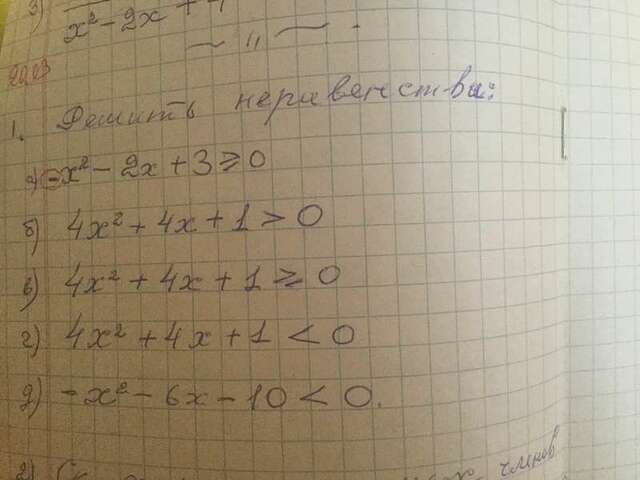 3)
x² - 2x +
— " —
20.03
1. Решить неравенства:
а) -x² - 2x + 3 ≥ 0
б) 4x² + 4x + 1 > 0
в) 4x² + 4x + 1 ≥ 0
г) 4x² + 4x + 1 < 0
д) -x² - 6x - 10 < 0.
членов